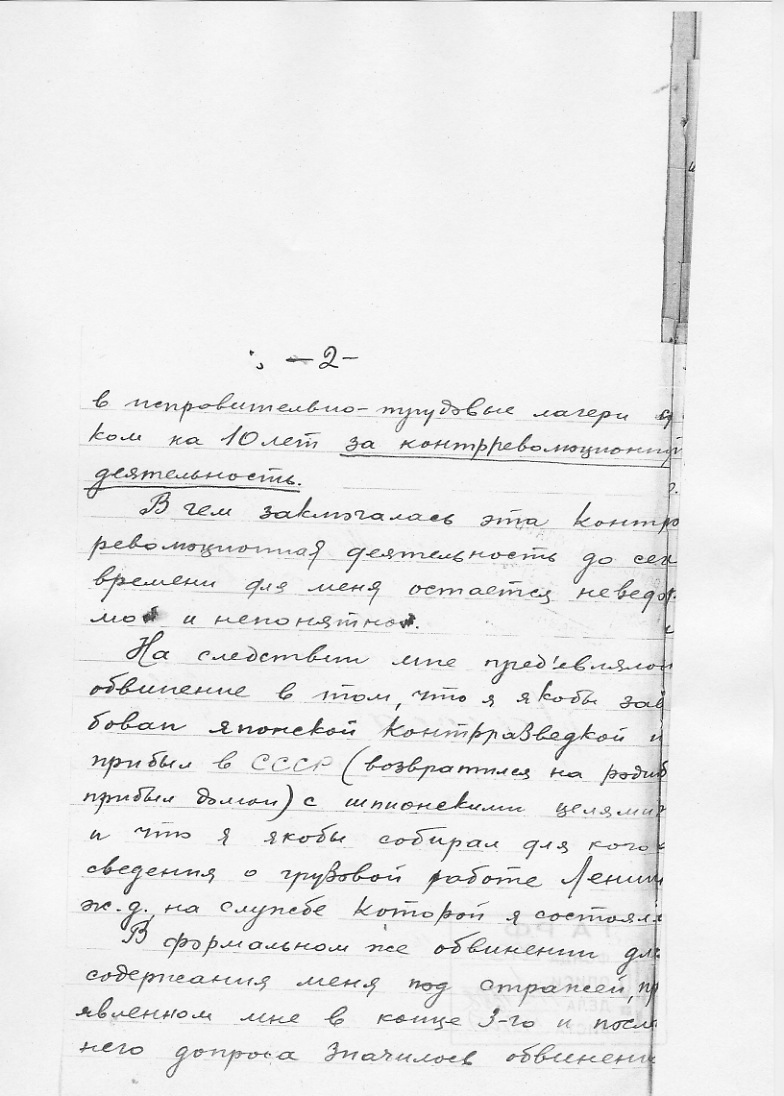 -2-
в исправительно-трудовые лагери
ком на 10 лет за контрреволюционну
деятельность.
В чем заключалась эта контр
революционная деятельность до сех
времени для меня остается неведо
мой и непонятной.
На следствии мне пред'евляло
обвинение в том, что я якобы зав
бован японской контрразведкой и
прибыл в СССР (возвратился на родин
прибыл домой) с шпионскими целями
и что я якобы собирал для кого
сведения о грузовой работе Ленин
ж.д. на службе которой я состоял
В формальном же обвинении для
содержания меня под стражей, пр
явленном мне в конце 3-го и после
него допроса значилось обвинени
ГАРФ